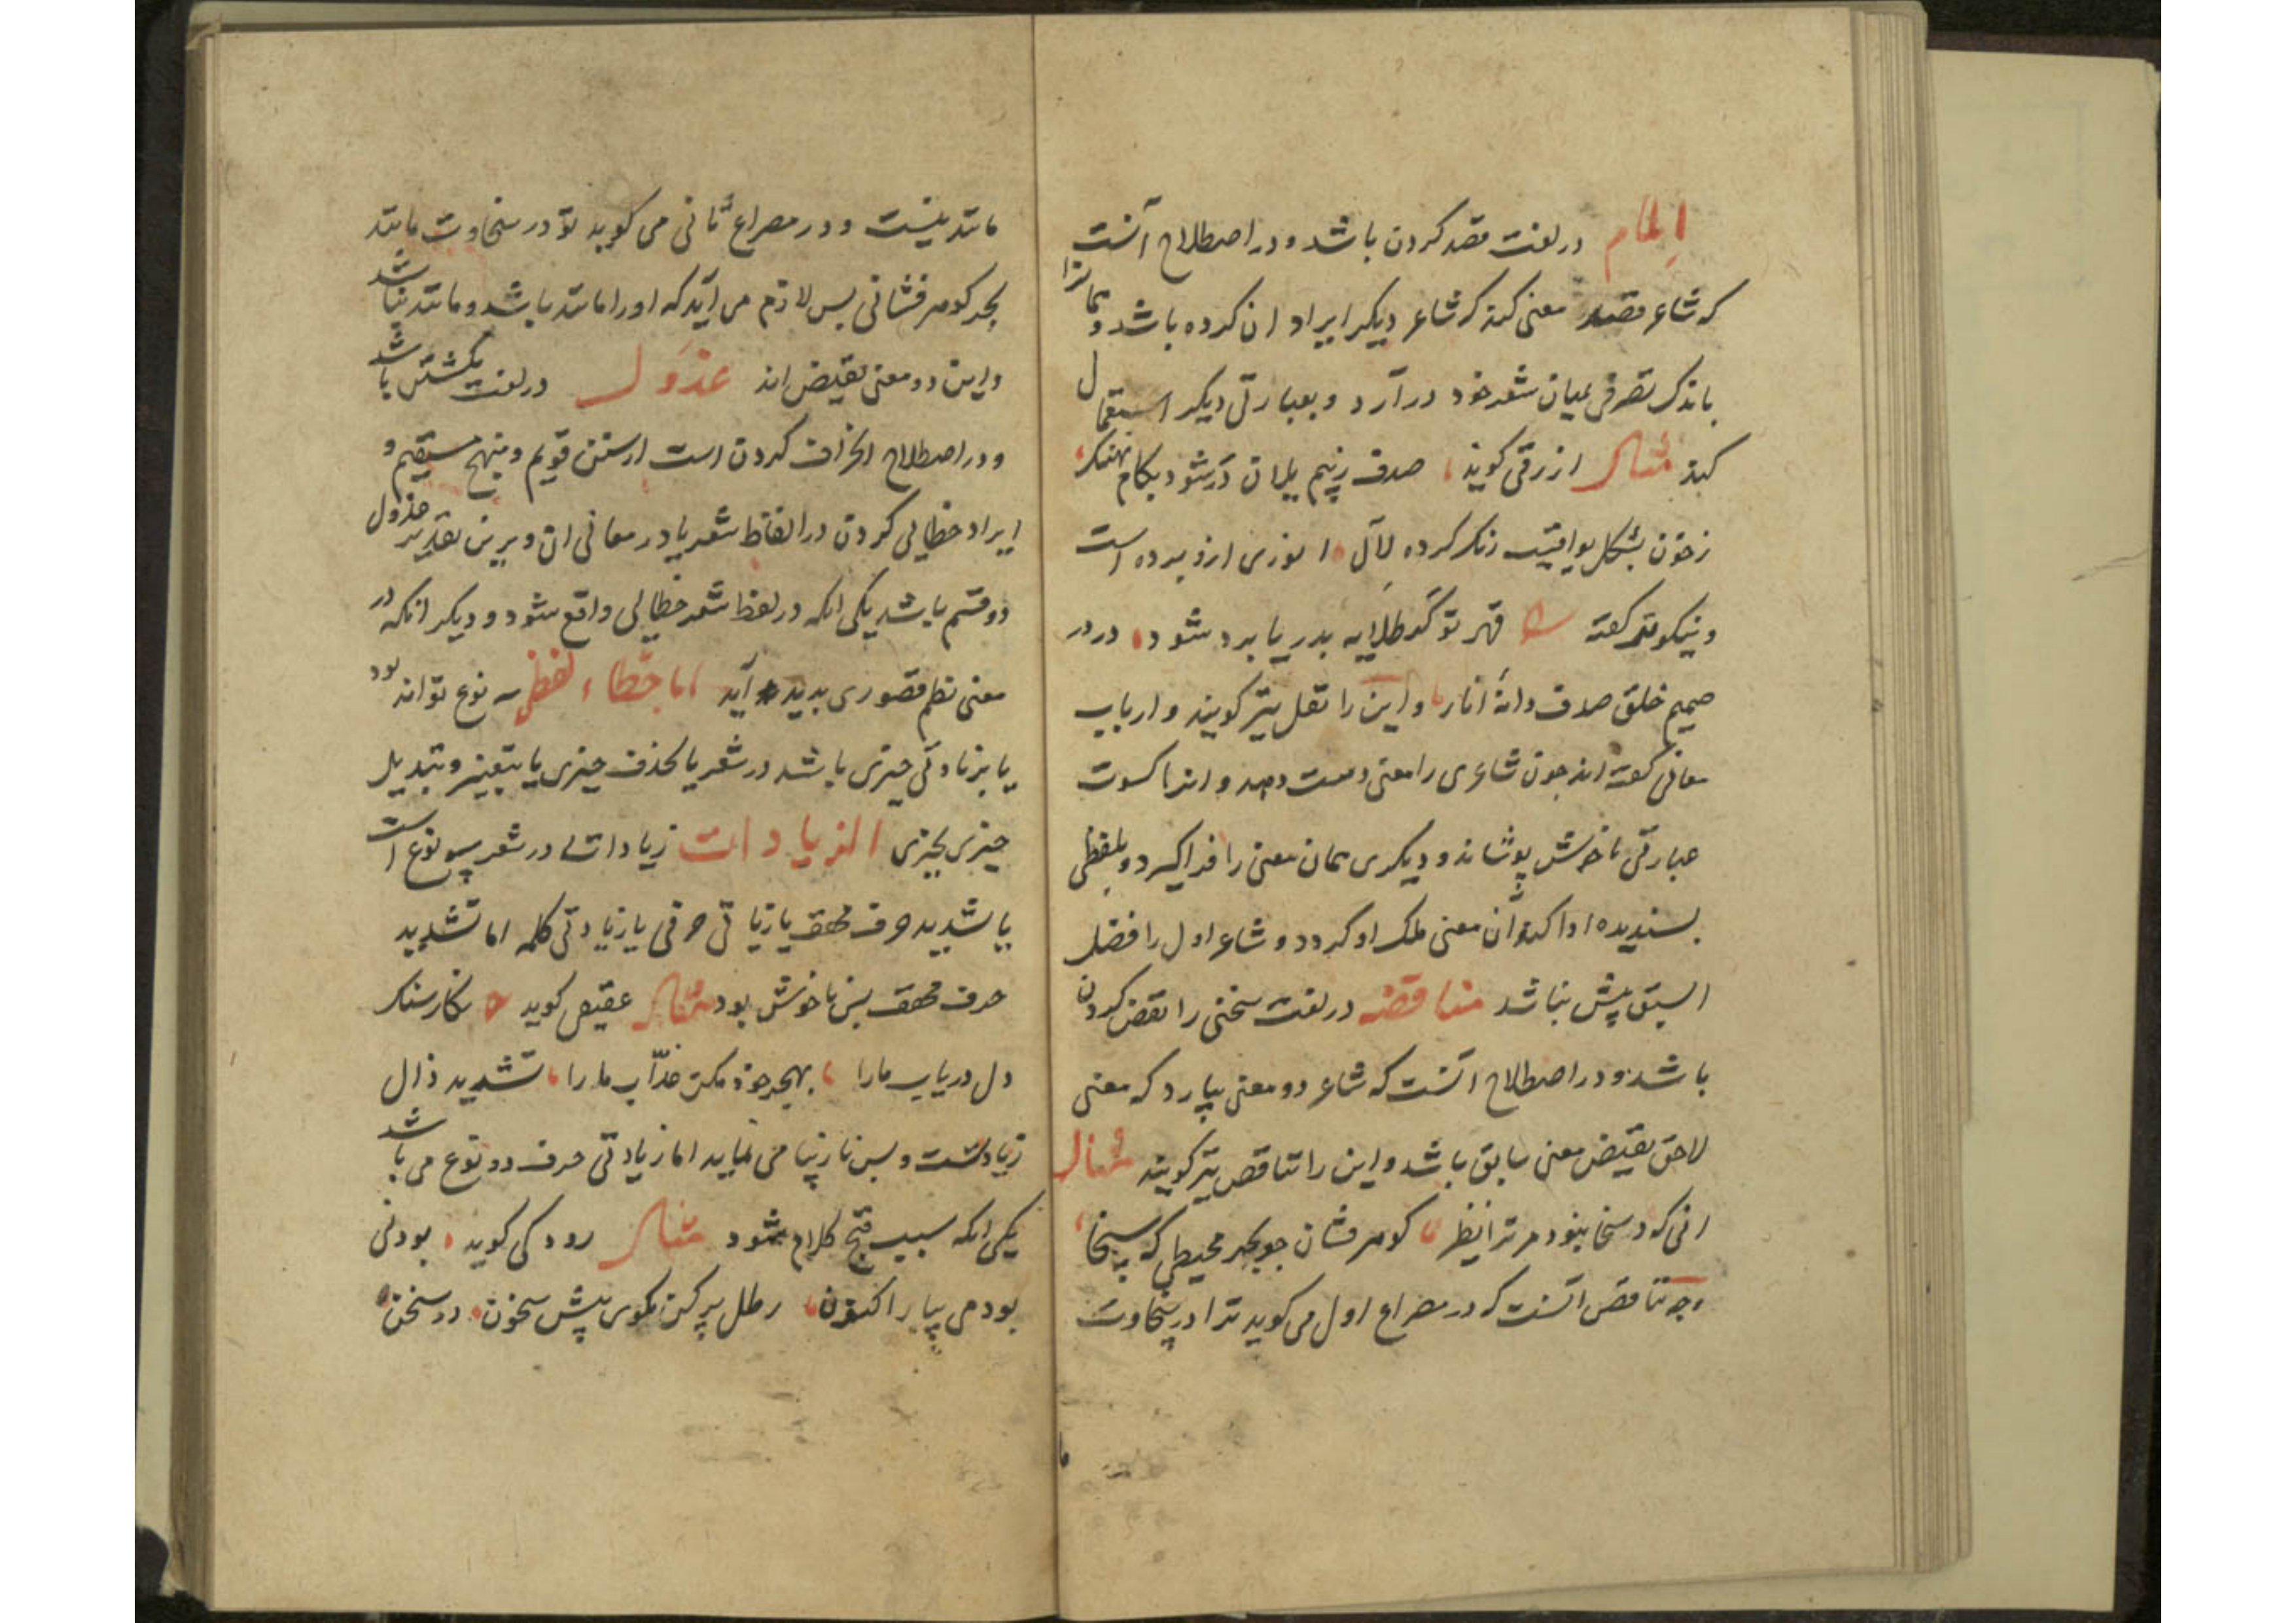 المام در لغت قصد کردن باشد و در اصطلاح آنست
که شاعر قصد معنی کند که شاعر دیکر ایراد ان کرده باشد و همانرا
باندک تصرفی بمیان شعر خود در آرد و بعبارتی دیکر استعمال
کند مثال ازرقی کوید صدف ز بیم یلان در شود بکام نهنک
زخون بشکل یواقیت رنک کرده لآل انوری ازو برده است
و نیکوتر کفته قهر تو کر طلایه بدریا برد شود در در
صمیم خلق صدف دانهٔ انار و این را نقل نیز کویند و ارباب
معانی کفته اند جون شاعری را معنی دست دهد و انرا کسوت
عبارتی ناخوش پوشاند و دیکری همان معنی را فرا کیرد و بلفظی
پسندیده ادا کند آن معنی ملک او کردد و شاعر اول را فضل
السبق بیش نباشد مناقضه در لغت سخنی را نقض کردن
باشد و در اصطلاح آنست که شاعر دو معنی بیارد که معنی
لاحق نقیض معنی سابق باشد و این را تناقص نیز کویند مثال
انی که در سخا نبود مر ترا نظر کوهر فشان جو بحر محیطی که سخا
وجه تناقص آنست که در مصراع اول می کوید ترا در سخاوت
مانند نیست و در مصراع ثانی می کوید تو در سخاوت مانند
بحر کوهر فشانی بس لازم می آید که او را مانند باشد و مانند نباشد
و این دو معنی نقیض اند عدول در لغت بکشتن باشد
و در اصطلاح انحراف کردن است از سنن قویم و منهج مستقیم و
ایراد خطایی کردن در الفاظ شعر یا در معانی ان و برین تقدیر عدول
دو قسم باشد یکی انکه در لفظ شعر خطایی واقع شود و دیکر انکه در
معنی نظم قصوری بدید آید اما خطاء لفظی سه نوع تواند بود
یا بزیادتی جیزی باشد در شعر یا بحذف جیزی یا بتغییر و تبدیل
جیزی بجیزی الزیادات زیادات در شعر سه نوع است
یا بتشدید حرف مخفف یا زیادتی حرفی یا زیادتی کلمه اما تشدید
حرف مخفف بس ناخوش بود مثال کوید نکار سنک
دل دریاب مارا بهجر خود مکن عذّاب مارا تشدید ذال
زیادتست و بس نازیبا می نماید اما زیادتی حرف دو نوع می باشد
یکی انکه سبب قبح کلام شود مثال رودکی کوید بودنی
بود می بیار اکنون رطل پر کن مکوی بیش سخون در سخن